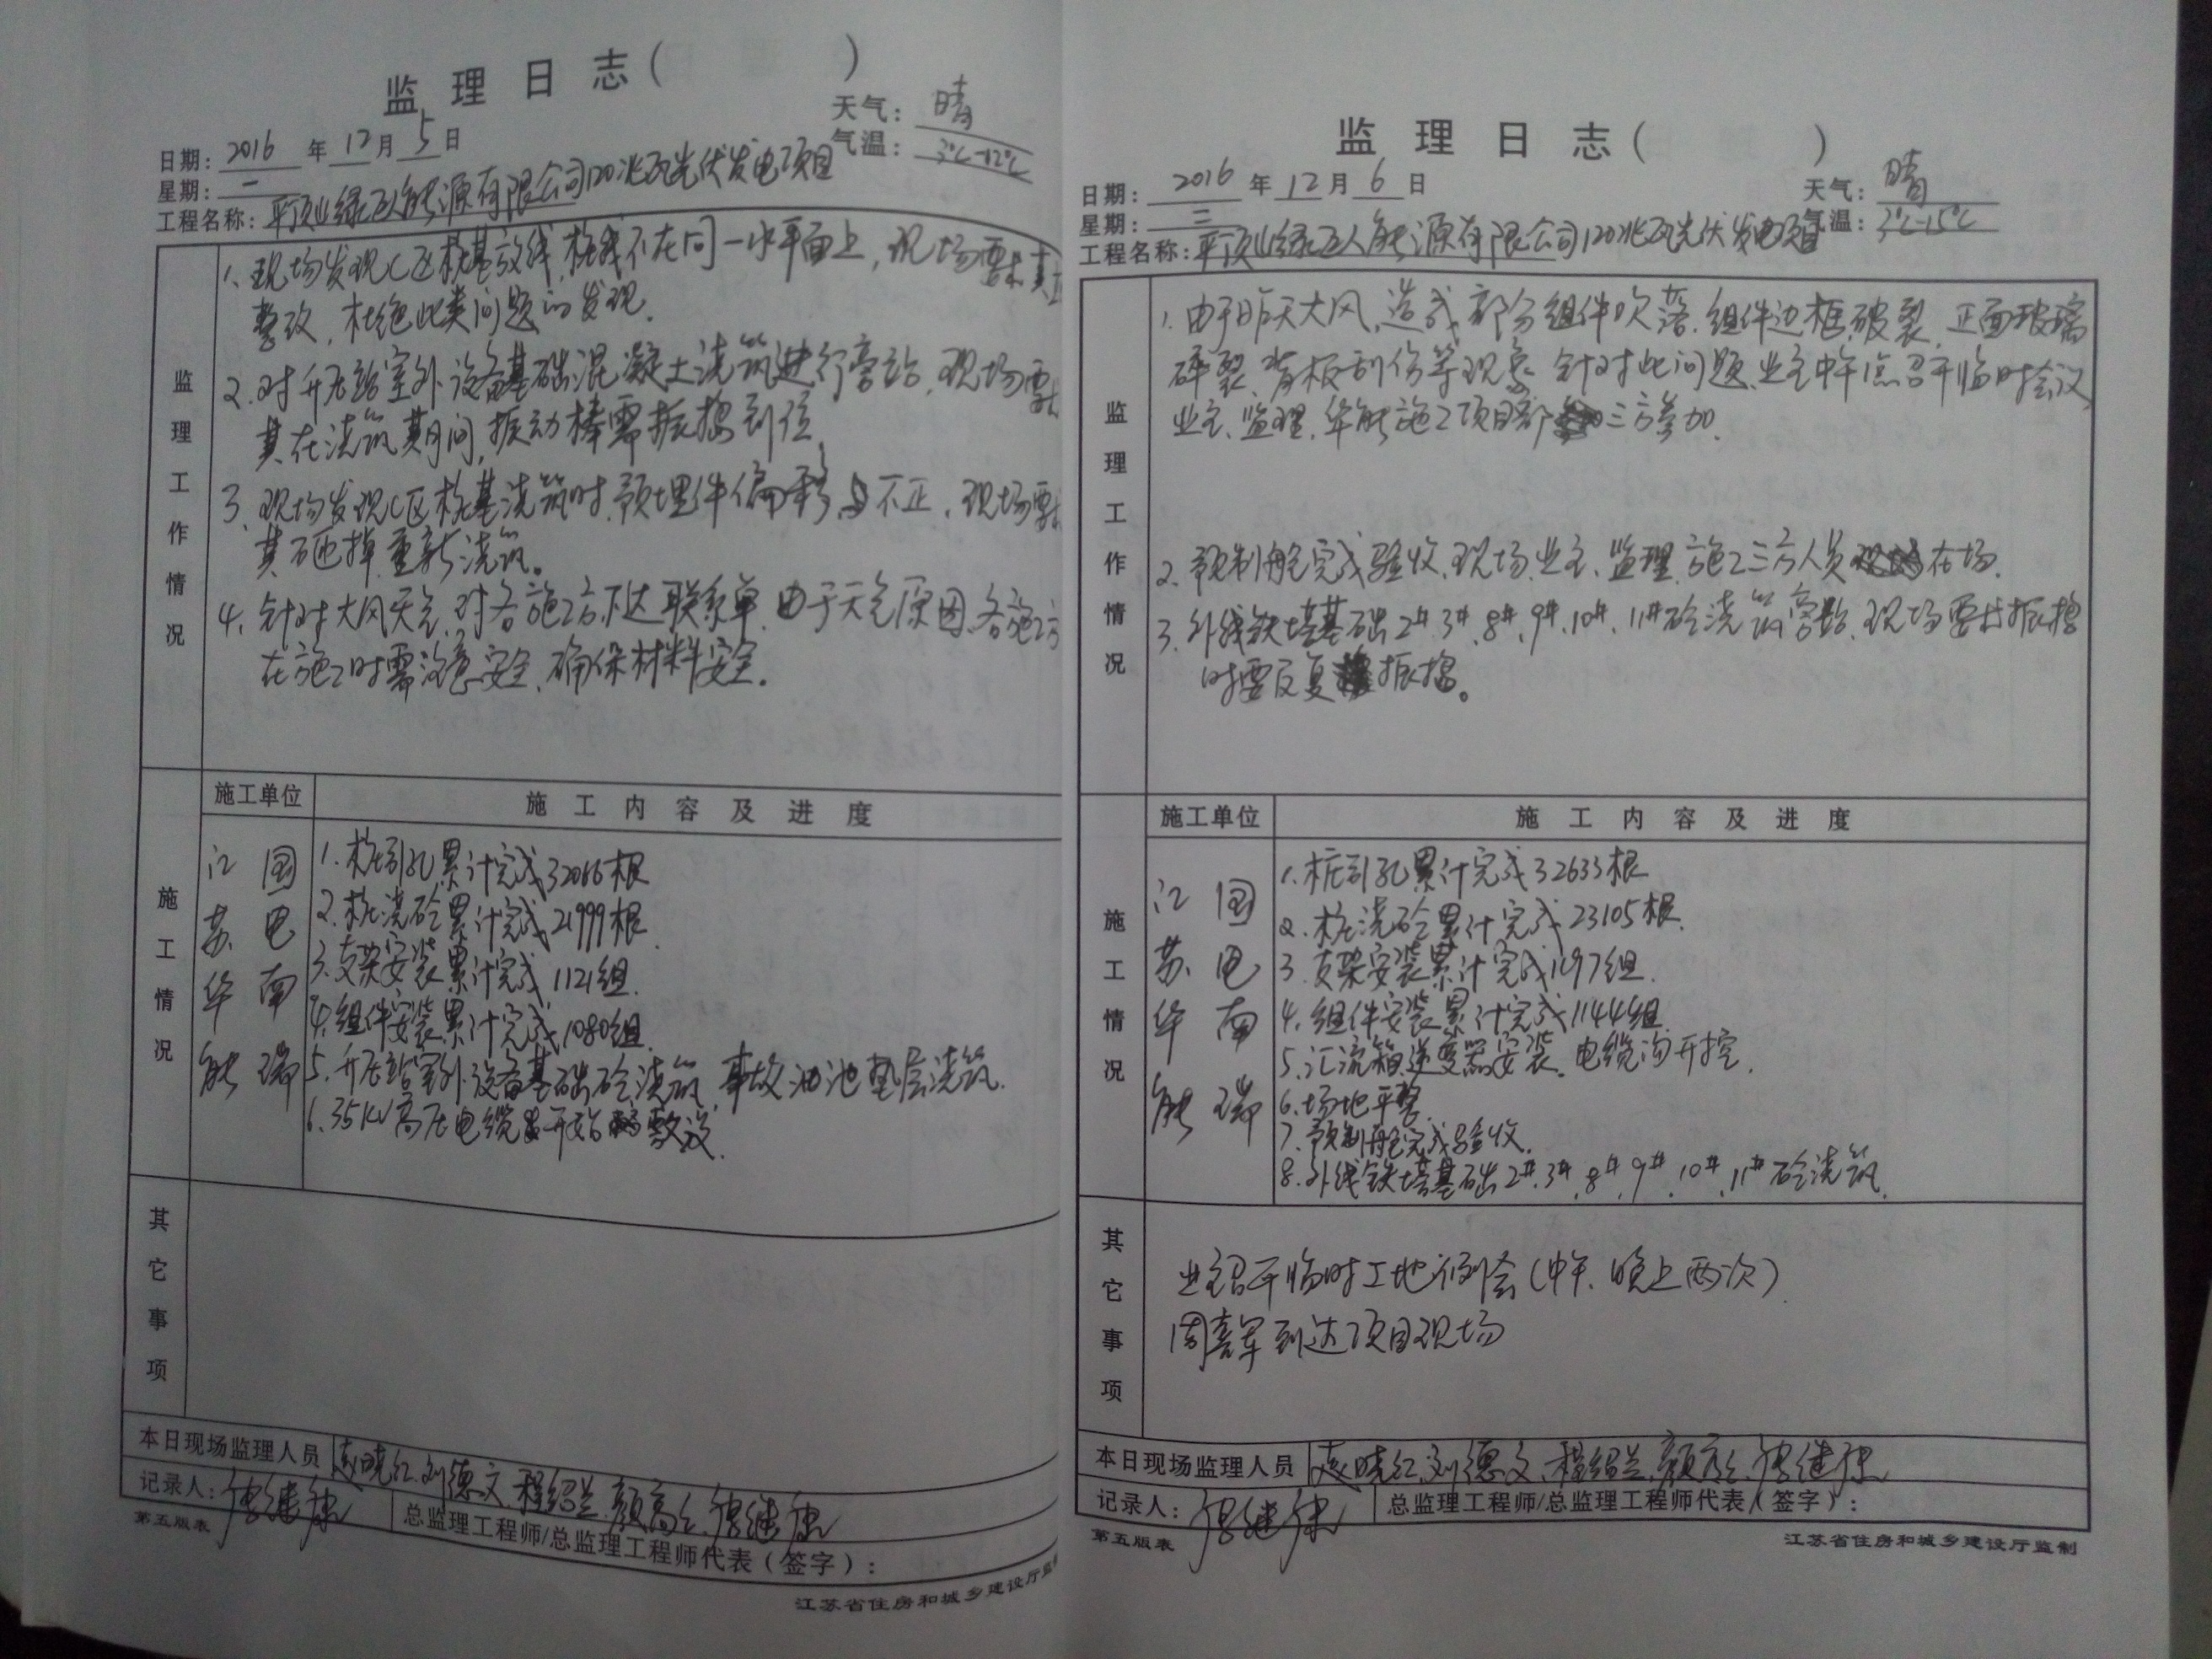 监理日志（ ）
天气：晴
日期：2016年12月5日
气温：3℃-12℃
星期：一
工程名称：平顶山绿巨人能源有限公司120兆瓦光伏发电项目
监理工作情况
1、现场发现C区桩基放线,桩线不在同一水平面上，现场要求其
整改，杜绝此类问题的发现.
2.对升压站室外设备基础混凝土浇筑进行旁站，现场要求
其在浇筑期间，振动棒需振捣到位，
3、现场发现C区桩基浇筑时,预埋件偏移,不正，现场要求
其砸掉重新浇筑。
4、针对大风天气,对各施工方下达联系单.由于天气原因,各施工方
在施工时需注意安全、确保材料安全。
施工单位 施工内容及进度
施工情况
江苏华能
国电南瑞
1.桩引孔累计完成32066根
2.桩浇砼累计完成21999根.
3.支架安装累计完成1121组.
4.组件安装累计完成1080组.
5.升压站室外设备基础砼浇筑，事故油池垫层浇筑.
6.35KV高压电缆开始敷设.
其它事项
本日现场监理人员 赵晓红.刘德文.程绍兰.颜高仁.
记录人：
总监理工程师/总监理工程师代表（签字）：
第五版表
江苏省住房和城乡建设厅监制
监理日志（ ）
日期：2016年12月6日
天气：晴
星期：二
气温：3℃-15℃
工程名称：平顶山绿巨人能源有限公司120兆瓦光伏发电项目
监理工作情况
1.由于昨天大风,造成部分组件吹落.组件边框破裂.正面玻璃
碎裂.背板刮伤等现象.针对此问题、业主中午1点召开临时会议,
业主、监理、华能施工项目部三方参加.
2.预制舱完成验收.现场业主、监理.施工三方人员在场.
3.外线铁塔基础2#.3#.8#.9#.10#.11#砼浇筑旁站.现场要求振捣
时要反复振捣。
施工单位 施工内容及进度
施工情况
江苏华能
国电南瑞
1.桩引孔累计完成32633根
2.桩浇砼累计完成23105根.
3.支架安装累计完成1197组.
4.组件安装累计完成1144组
5.汇流箱逆变器安装.电缆沟开挖.
6.场地平整
7.预制舱完成验收.
8.外线铁塔基础2#.3#.8#.9#.10#.11#砼浇筑.
其它事项
业主召开临时工地例会（中午、晚上两次）
周喜军到达项目现场
本日现场监理人员 赵晓红.刘德文.程绍兰.颜高仁.
记录人：
总监理工程师/总监理工程师代表（签字）：
第五版表
江苏省住房和城乡建设厅监制